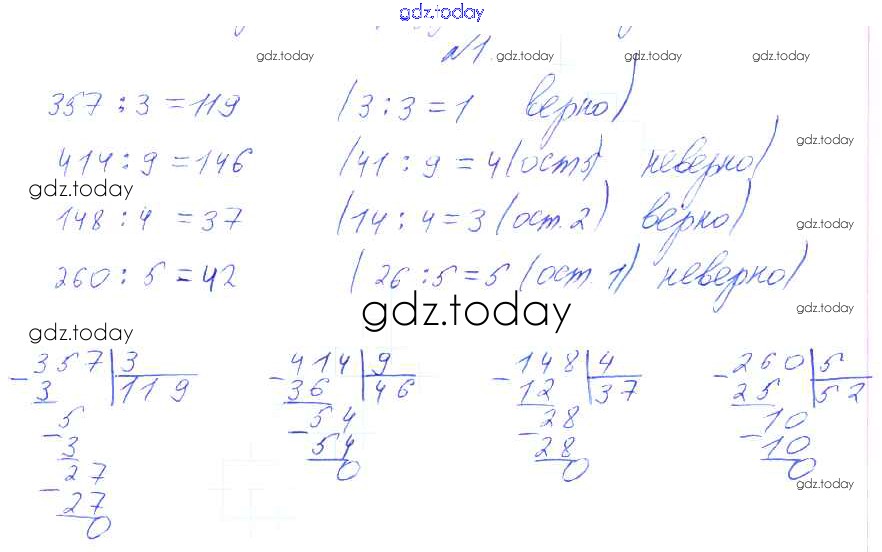 gdz.today
gdz.today №1 gdz.today gdz.today gdz.today
357 : 3 = 119 (3 : 3 = 1 верно)
gdz.today
414 : 9 = 146 (41 : 9 = 4 (ост 5) неверно)
gdz.today
148 : 4 = 37 (14 : 4 = 3 (ост. 2) верно)
gdz.today
260 : 5 = 42 (26 : 5 = 5 (ост. 1) неверно)
gdz.today gdz.today
gdz.today
- 357 | 3 - 414 | 9 - 148 | 4 - 260 | 5
3 119 36 46 12 37 25 52
- 5 - 54 - 28 - 10
3 54 28 10
- 27 0 0 0
gdz.today
27
0